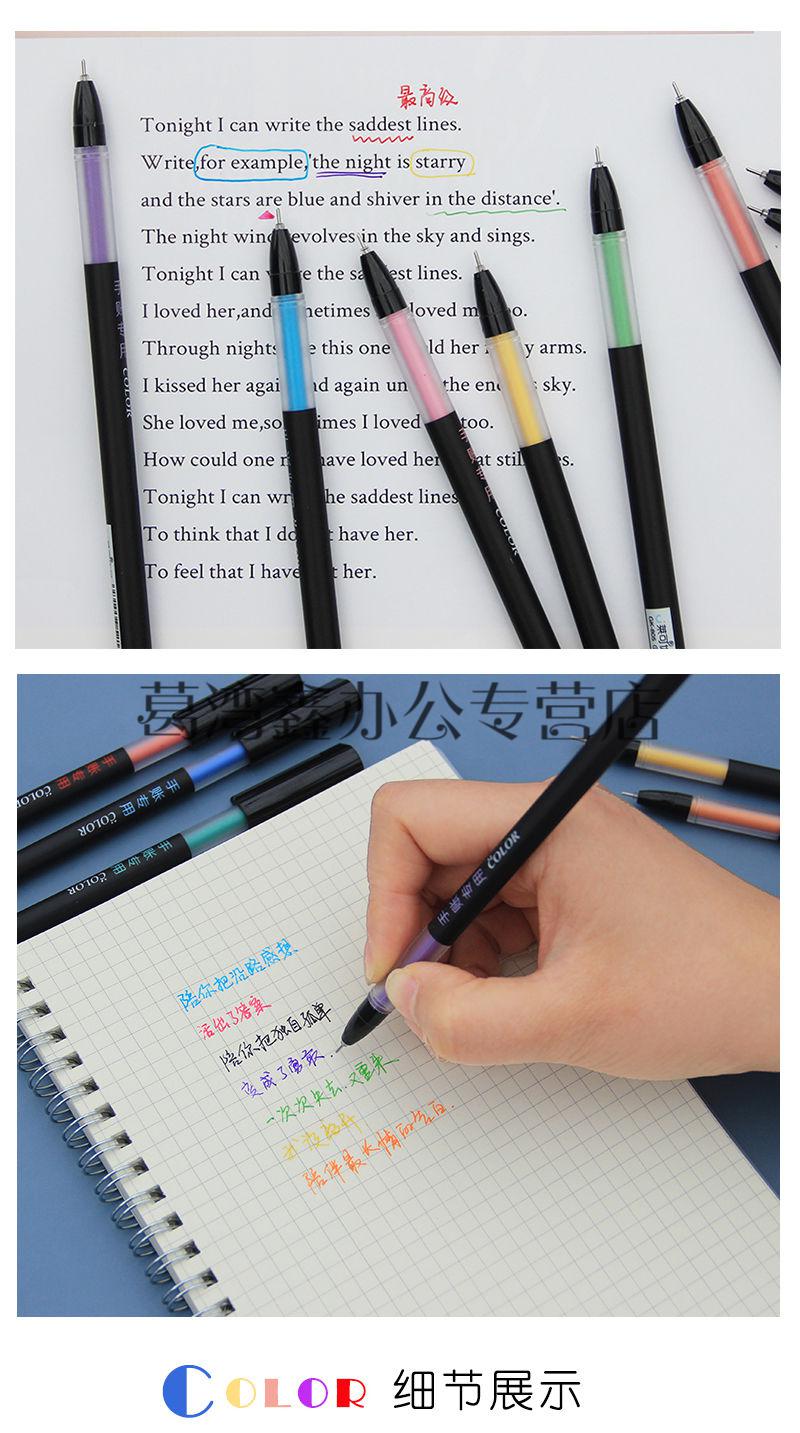 最高级
Tonight I can write the saddest lines.
Write,for example,'the night is starry
and the stars are blue and shiver in the distance'.
The night wind revolves in the sky and sings.
Tonight I can write the saddest lines.
I loved her,and sometimes loved me too.
Through nights like this one held her in my arms.
I kissed her again and again under the endless sky.
She loved me,sometimes I loved too.
How could one not have loved her great still eyes.
Tonight I can write the saddest lines
To think that I do not have her.
To feel that I have lost her.
手账专用 COLOR
COLOR
莱可
GK-805
葛湾鑫办公专营店
手账专用 COLOR
手账专用 COLOR
手账专用 COLOR
手账专用 COLOR
陪你把沿路感想
活出了答案
陪你把独自孤单
变成了勇敢.
一次次失去.又重来
我没离开
陪伴最长情的告白.
COLOR 细节展示